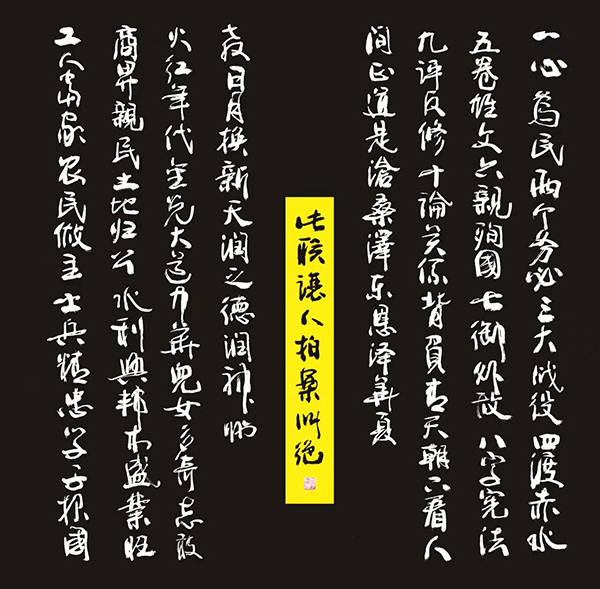 一心為民兩个务必三大战役四渡赤水
五卷雄文六親殉國七御外敌八字宪法
九评反修十論关系背負青天朝下看人
间正道是滄桑澤东恩泽華夏
此联讓人拍案叫绝
工人当家农民做主士兵精忠学子报國
商昇親民土地归公水利興邦木盛業旺
火红年代金光大道中華兒女多奇志敢
教日月换新天润之德润神州